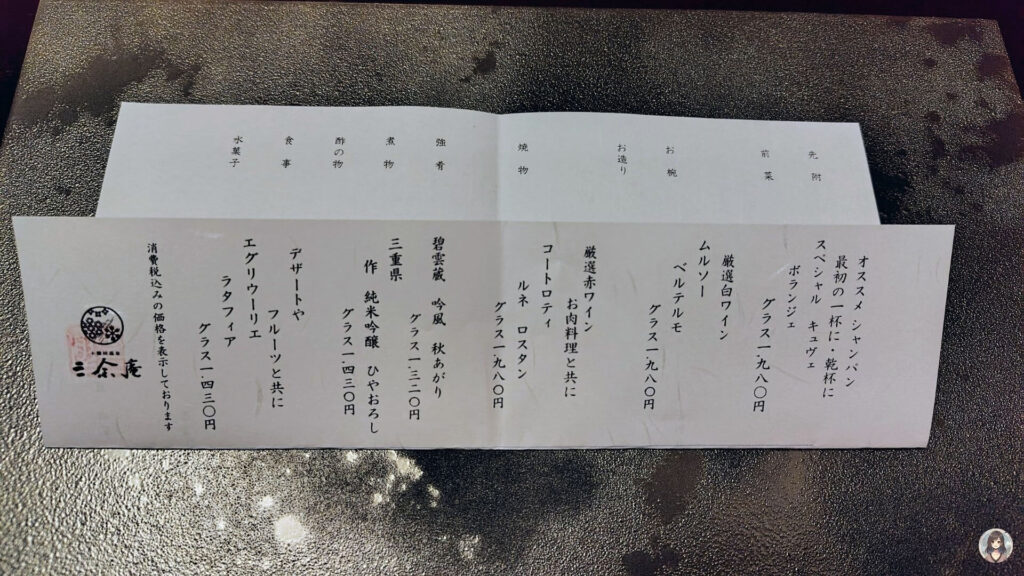 先附
前菜
お椀
お造り
焼物
強肴
煮物
酢の物
食事
水菓子
オススメ シャンパン
最初の一杯に 乾杯に
スペシャル キュヴェ
ボランジェ
グラス一、九八〇円
厳選白ワイン
ムルソー
ベルテルモ
グラス一、九八〇円
厳選赤ワイン
お肉料理と共に
コートロティ
ルネ ロスタン
グラス一、九八〇円
碧雲蔵 吟風 秋あがり
グラス一、三二〇円
三重県
作 純米吟醸 ひやおろし
グラス一、四三〇円
デザートや
フルーツと共に
エグリウーリエ
ラタフィア
グラス一、四三〇円
消費税込みの価格を表示しております
三余庵